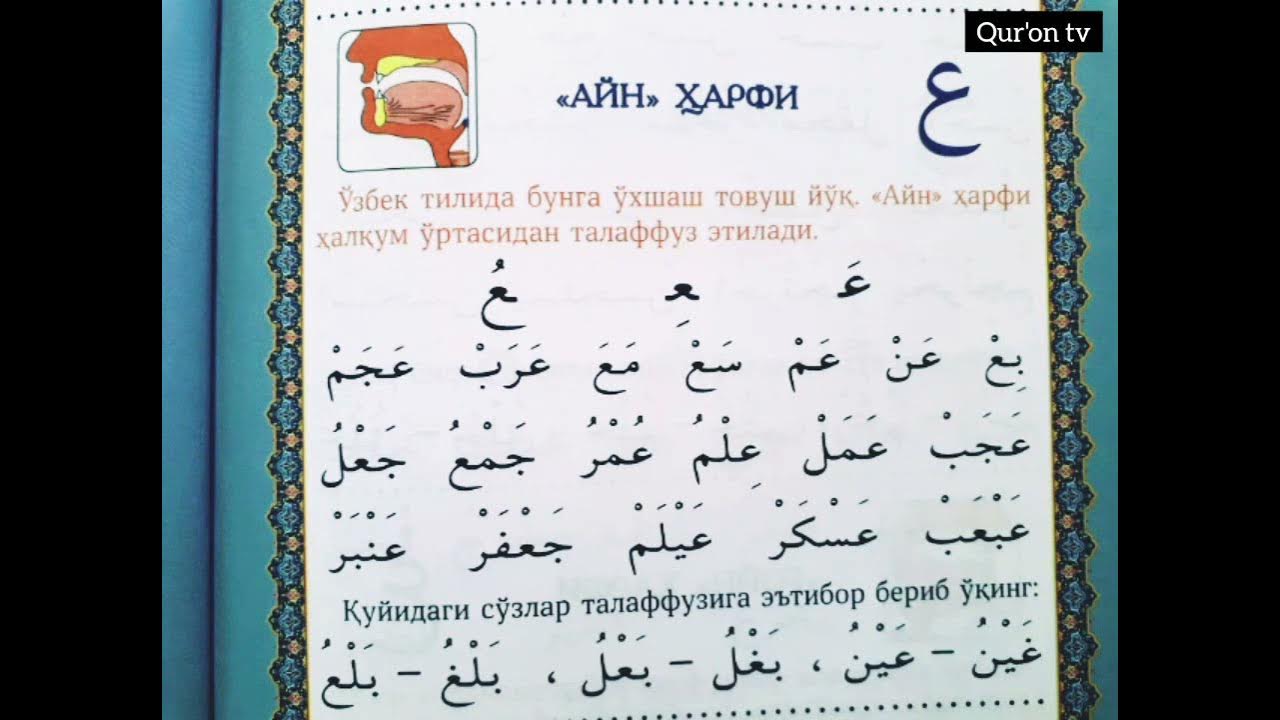 Qur'on tv
«АЙН» ҲАРФИ
ع
Ўзбек тилида бунга ўхшаш товуш йўқ. «Айн» ҳарфи
ҳалқум ўртасидан талаффуз этилади.
عَ عِ عُ
بِعْ عَنْ عَمْ سَعْ مَعَ عَرَبْ عَجَمْ
عَجَبْ عَمَلْ عِلْمُ عُمْرُ جَمْعُ جَعْلُ
عَبْعَبْ عَسْكَرْ عَيْلَمْ جَعْفَرْ عَنْبَرْ
Қуйидаги сўзлар талаффузига эътибор бериб ўқинг:
غَيْنُ – عَيْنُ ، بَغْلُ – بَعْلُ ، بَلْغُ – بَلْعُ